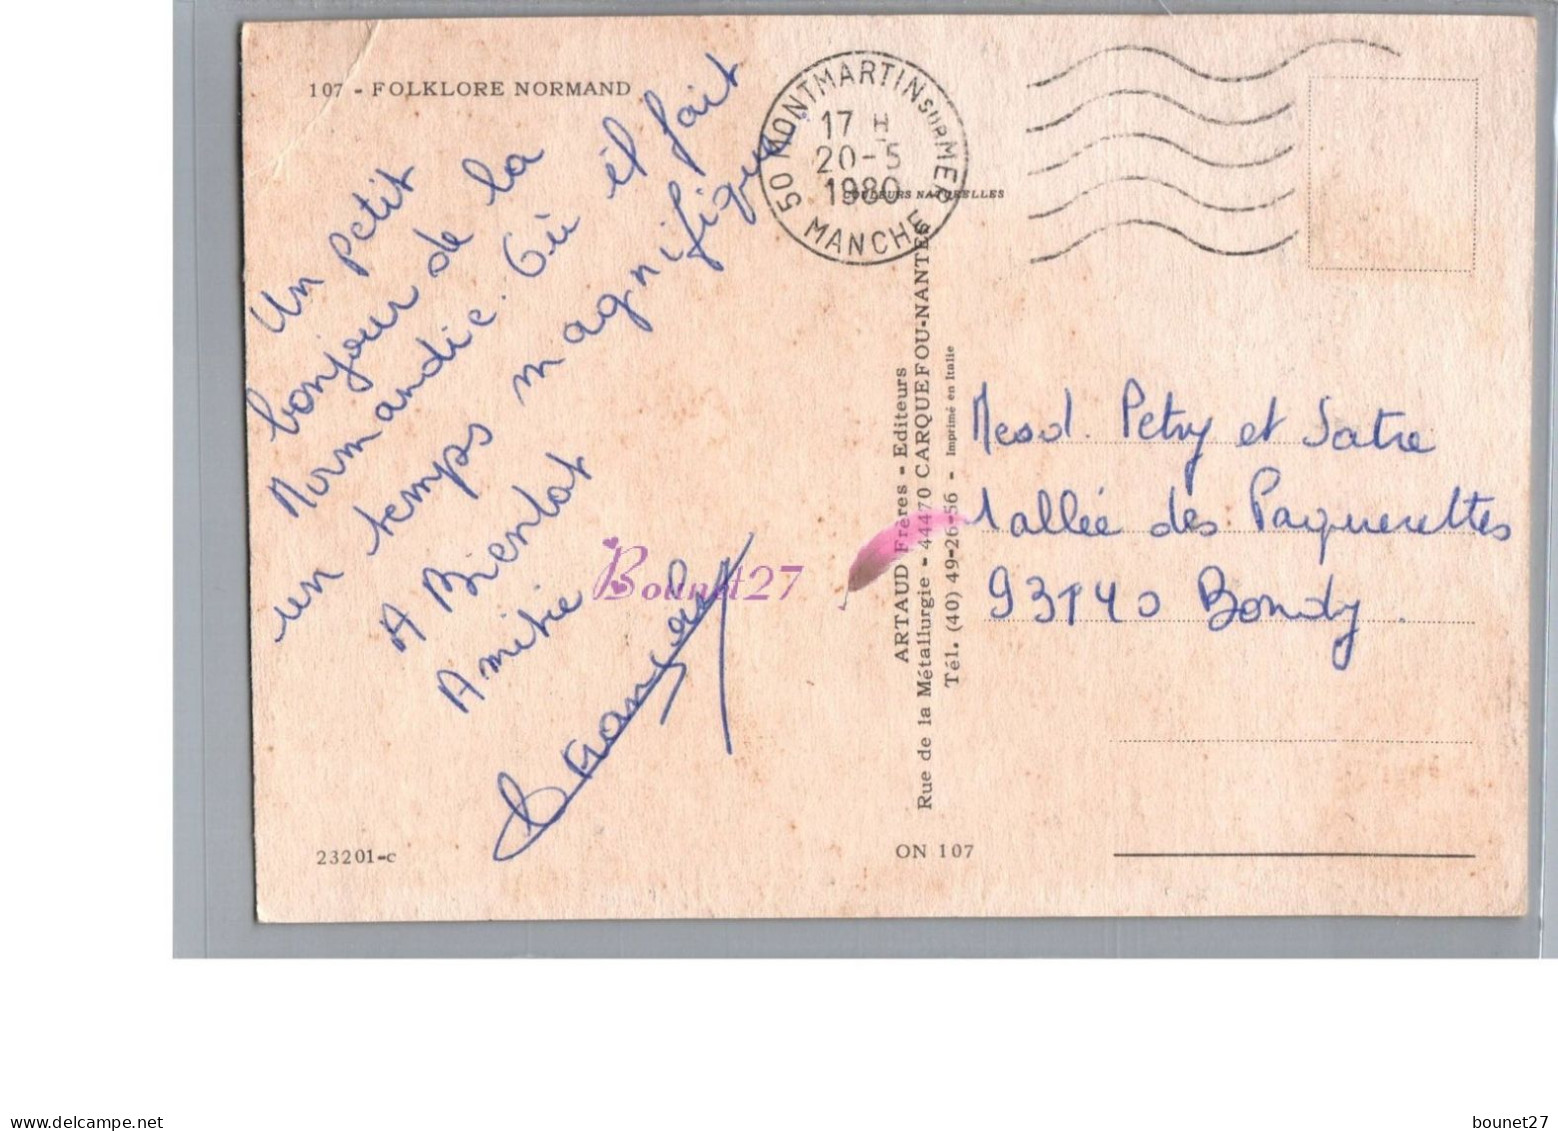 107 - FOLKLORE NORMAND
Un petit
bonjour de la
Normandie. Où il fait
un temps magnifique.
A Bientot
Amitié
23201-c
50 MONTMARTIN SUR MER
17 H
20-5
1980
MANCHE
COULEURS NATURELLES
ARTAUD Frères - Editeurs
Rue de la Métallurgie - 44470 CARQUEFOU-NANTES
Tél. (40) 49-26-56 - Imprimé en Italie
ON 107
Mesd. Petry et Satre
1 allée des Paquerettes
93140 Bondy.
Bounet27
delcampe.net
bounet27